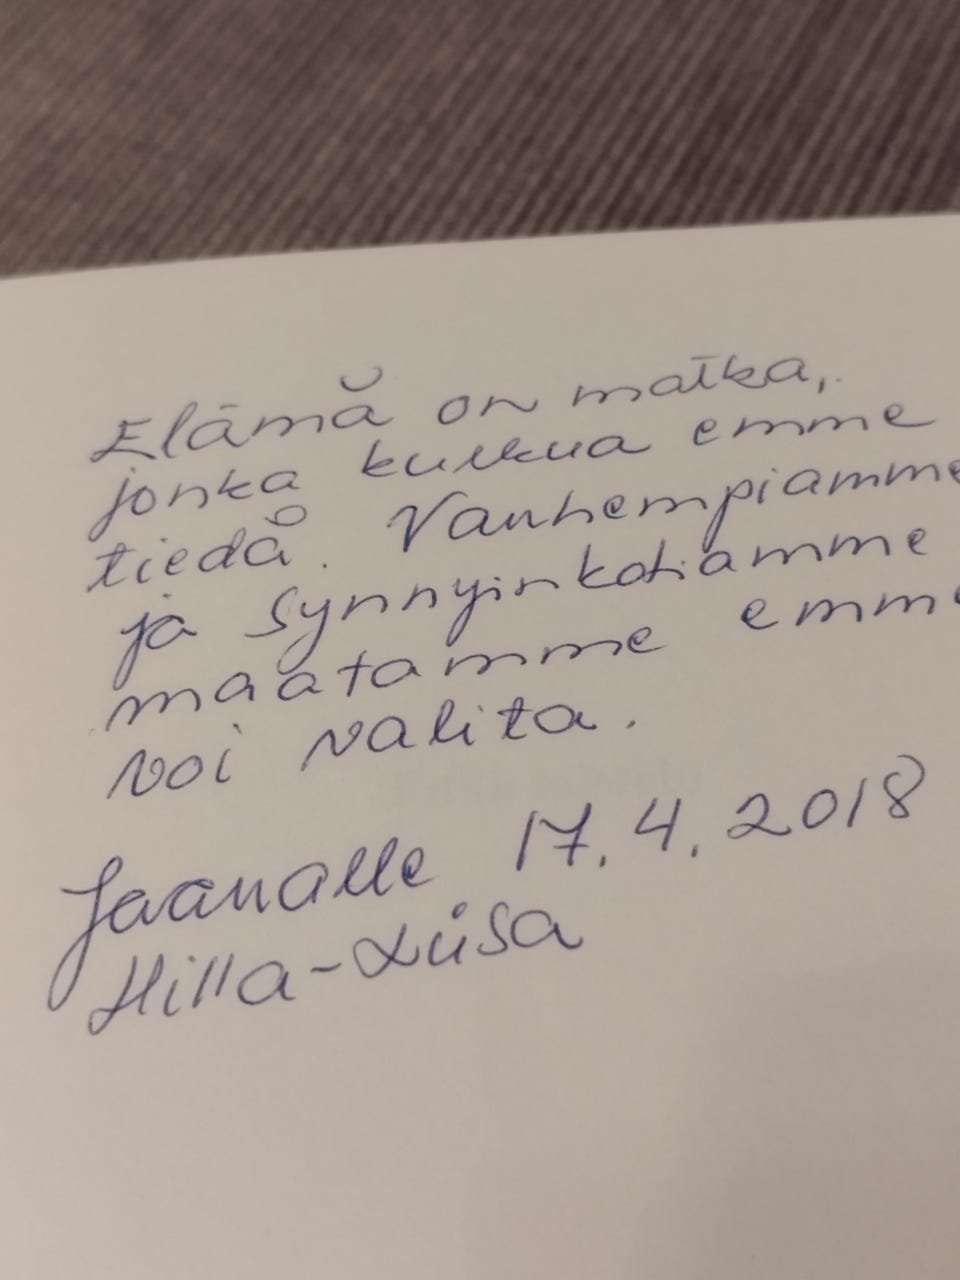 Elämä on matka,
jonka kulkua emme
tiedä. Vanhempiamme
ja synnyinkotiamme
maatamme emme
voi valita.
Jaanalle 17.4.2018
Hilla-Liisa